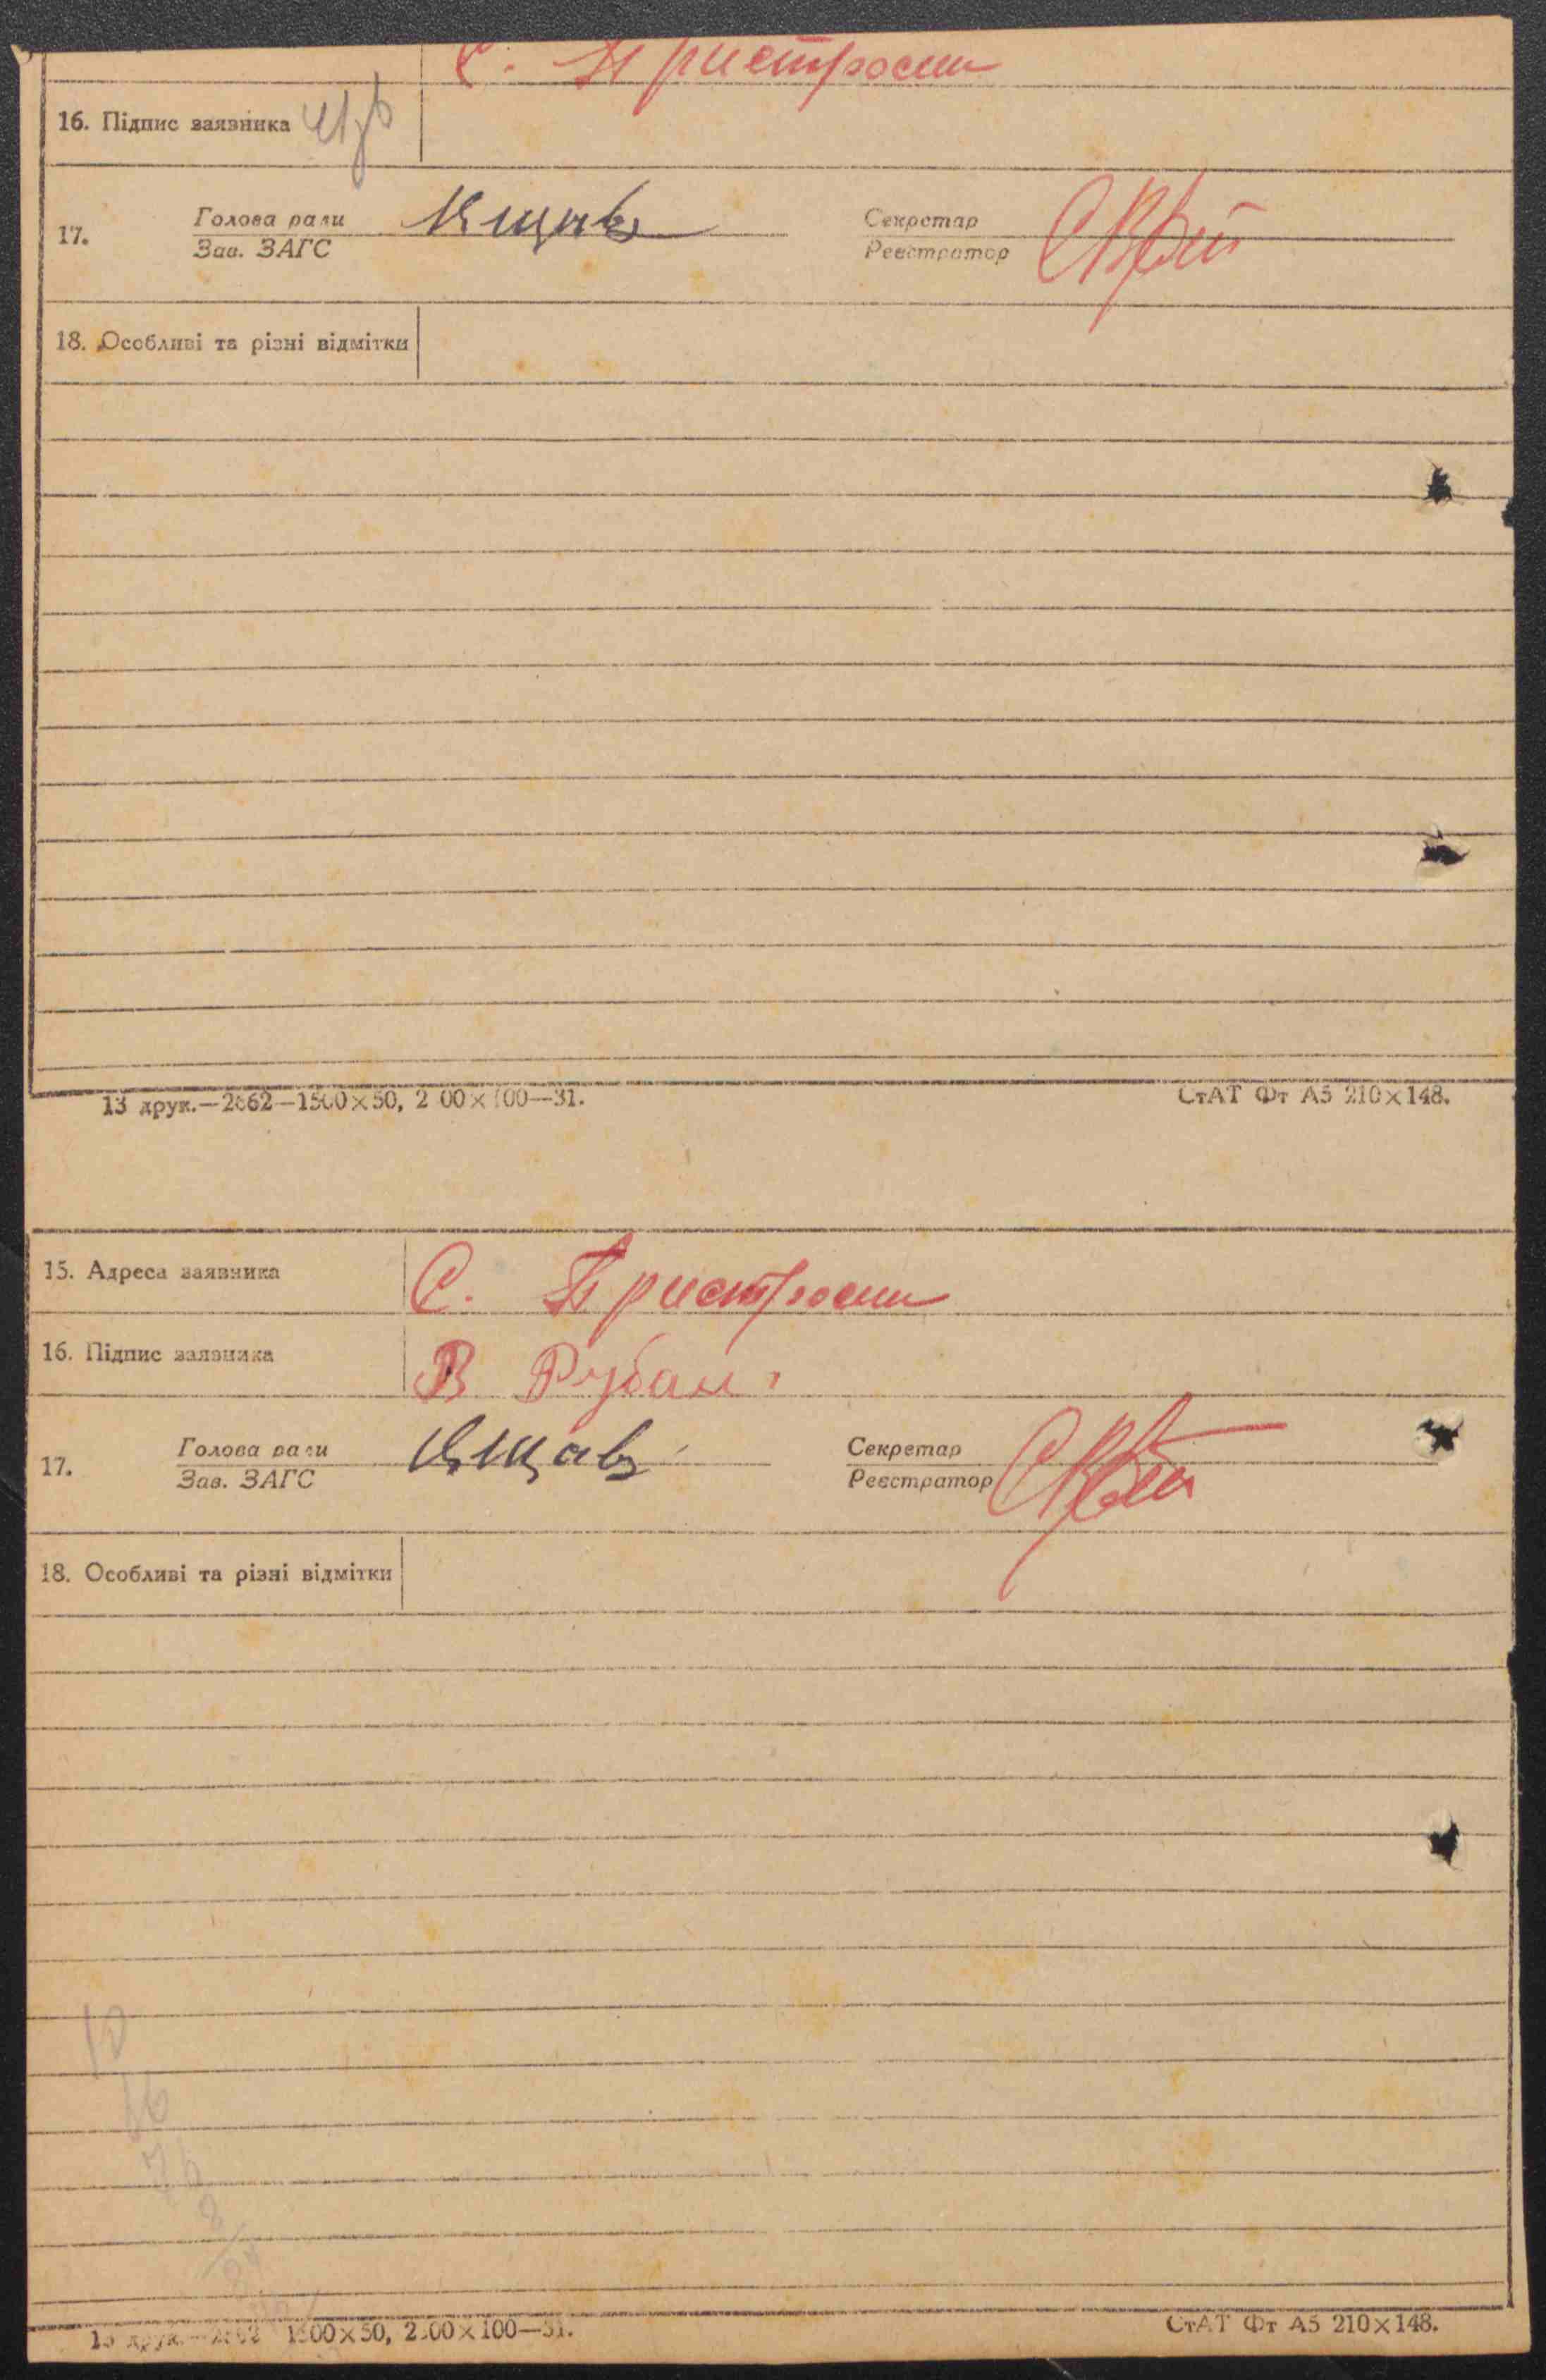 С. Пристроми
16. Підпис заявника
17. Голова ради Кщав Секретар
Зав. ЗАГС Реєстратор
18. Особливі та різні відмітки
13 друк.—2662—1500×50, 2 00×100—31. СтАТ Фт А5 210×148.
15. Адреса заявника С. Пристроми
16. Підпис заявника В Рубан.
17. Голова ради Кщав Секретар
Зав. ЗАГС Реєстратор
18. Особливі та різні відмітки
13 друк.—2662 1500×50, 2 00×100—31. СтАТ Фт А5 210×148.